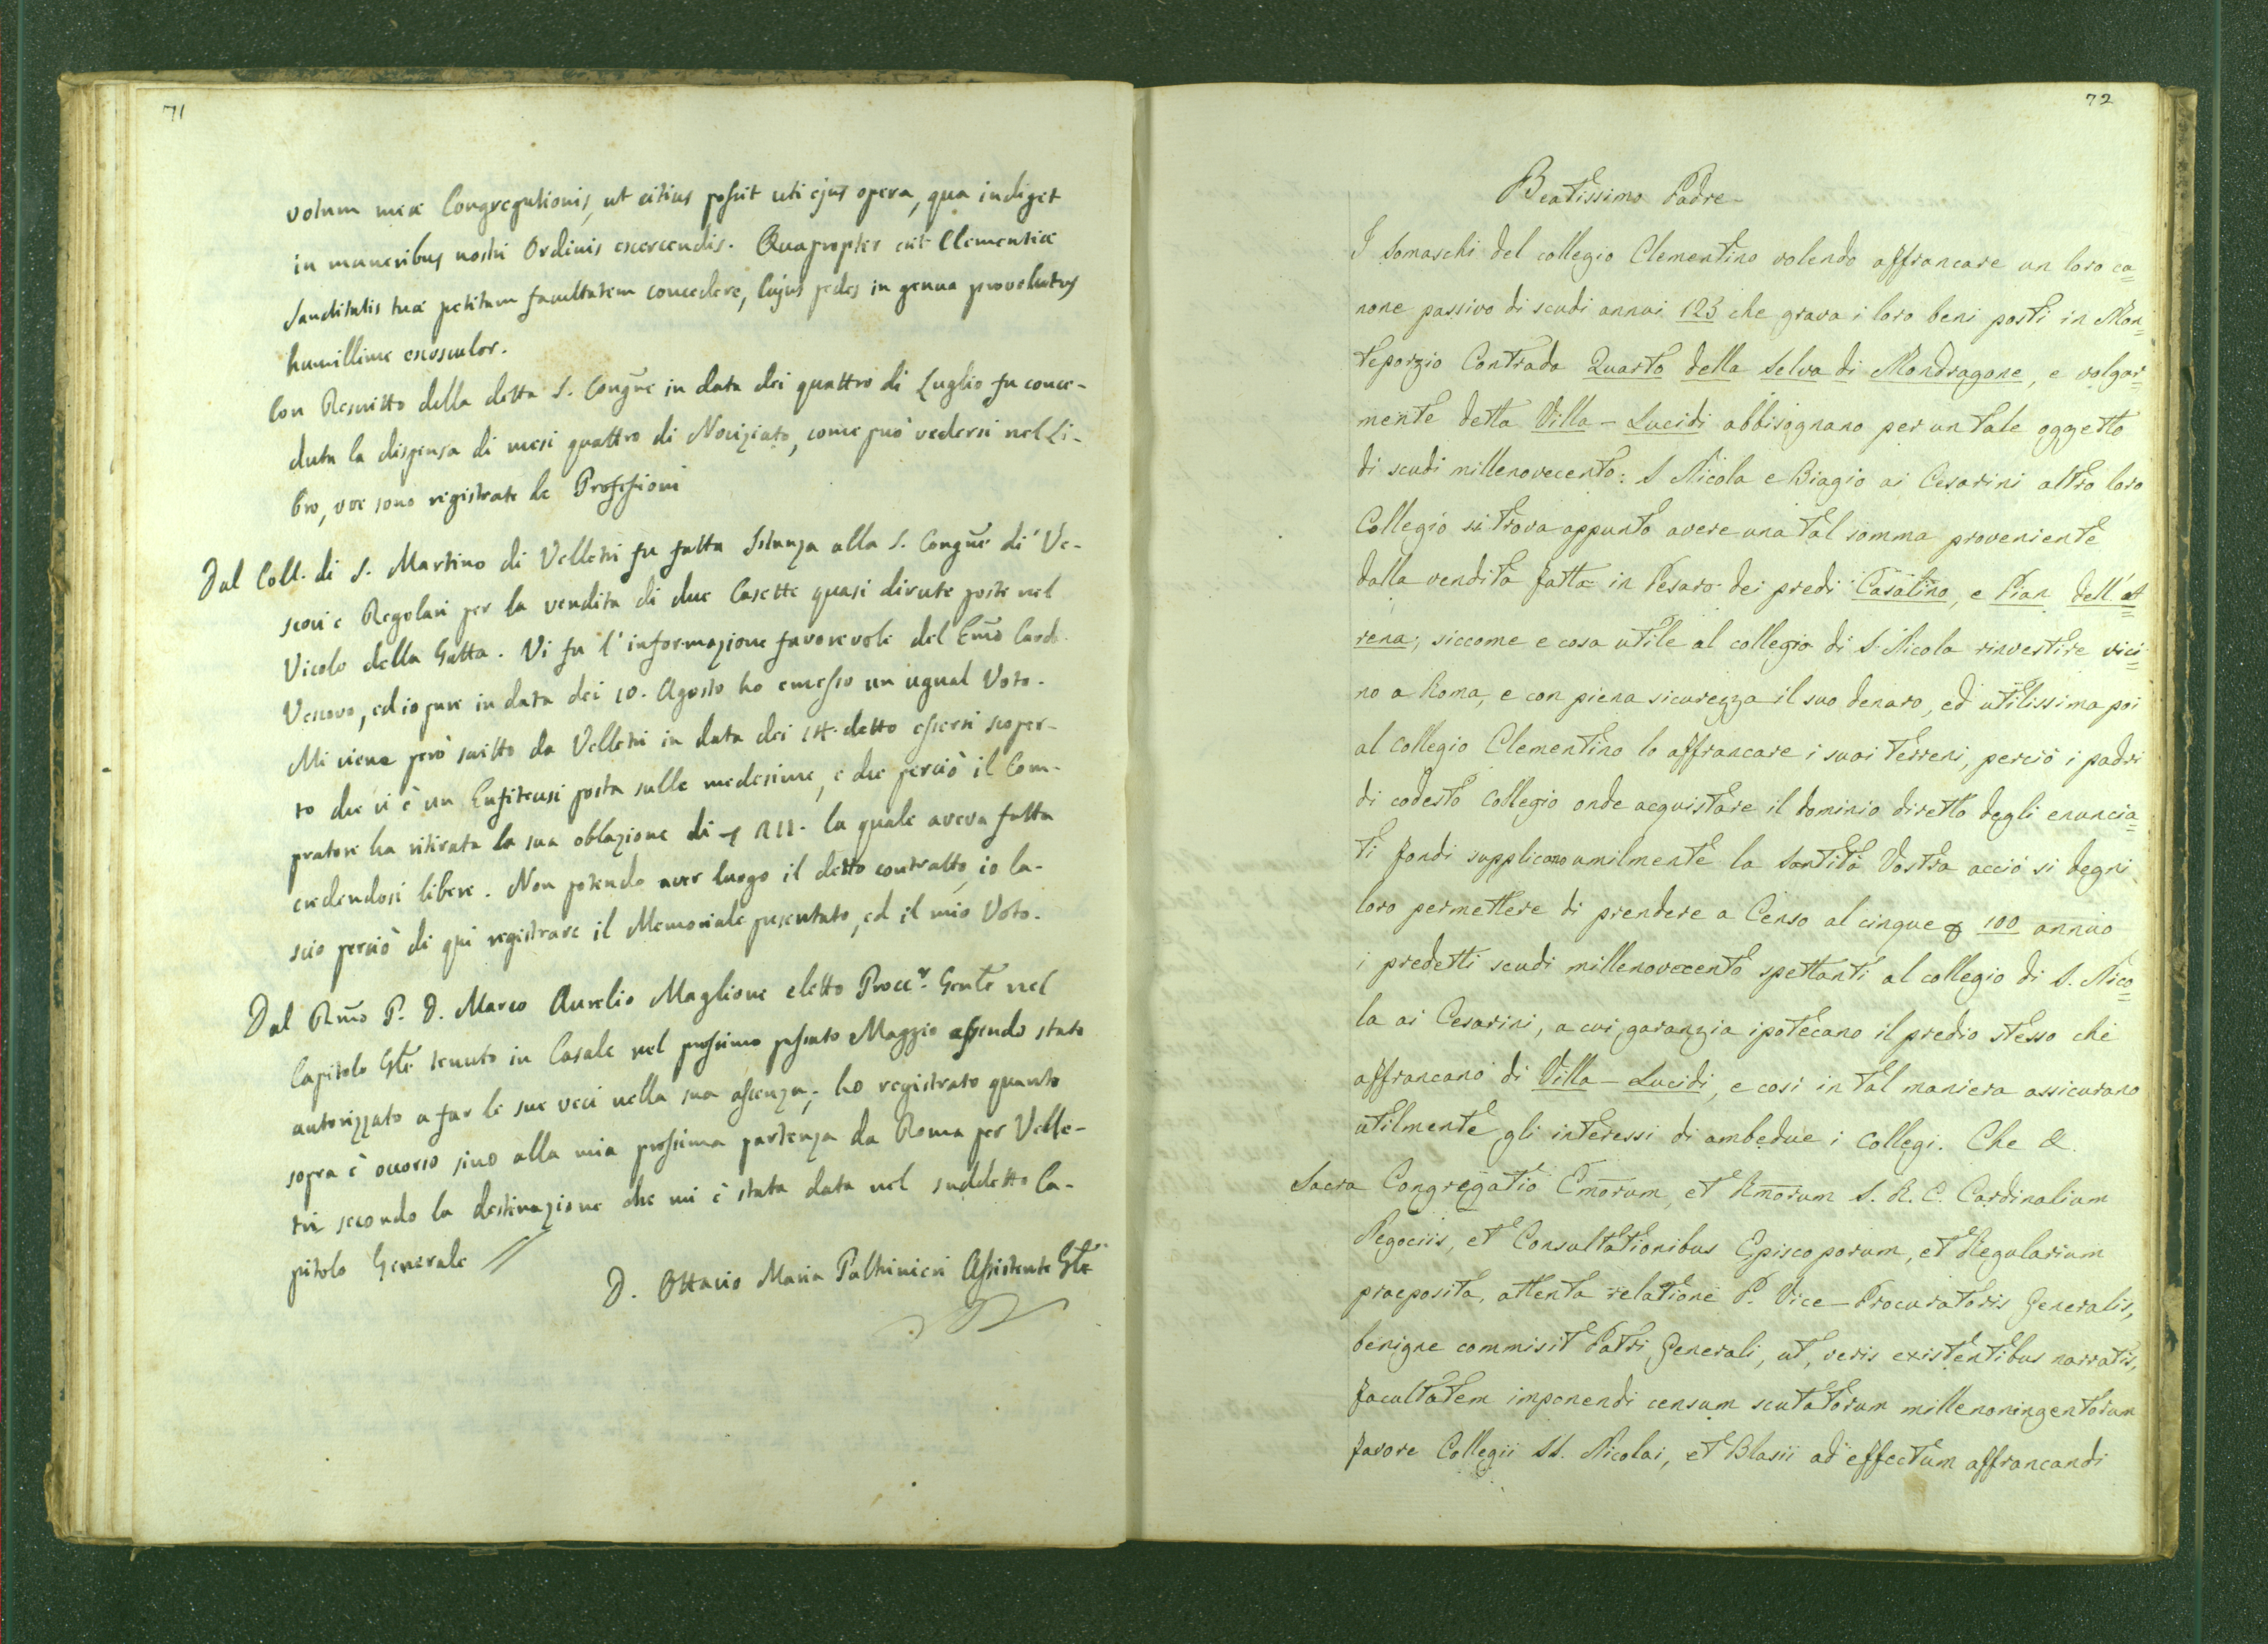 71
votum meæ Congregationis, ut citius possit uti ejus opera, qua indiget
in muneribus nostri Ordinis exercendis. Quapropter erit Clementiæ
Sanctitatis tuæ petitam facultatem concedere, Cujus pedes in genua provolutus
humillime exosculor.
Con Rescritto della detta S. Congne in data dei quattro di Luglio fu conce-
duta la dispensa di mesi quattro di Noviziato, come può vedersi nel Li-
bro, ove sono registrate le Professioni
Dal Coll. di S. Martino di Velletri fu fatta Istanza alla S. Congne di Ve-
scovi e Regolari per la vendita di due Casette quasi dirute poste nel
Vicolo della Gatta. Vi fu l'informazione favorevole del Emo Card.
Vescovo, ed io pure in data dei 10. Agosto ho emesso un ugual Voto.
Mi viene però scritto da Velletri in data dei 14. detto essersi scoper-
to che vi è un Enfiteusi posta sulle medesime, e che perciò il Com-
pratore ha ritirata la sua oblazione di la quale aveva fatta
credendosi libere. Non potendo aver luogo il detto contratto, io la-
scio perciò di qui registrare il Memoriale presentato, ed il mio Voto.
Dal Rmo P. D. Marco Aurelio Maglione eletto Procr. Gente nel
Capitolo Gle tenuto in Casale nel prossimo passato Maggio essendo stato
autorizzato a far le sue veci nella sua assenza, ho registrato quanto
sopra è occorso sino alla mia prossima partenza da Roma per Velle-
tri secondo la destinazione che mi è stata data nel suddetto Ca-
pitolo Generale //
D. Ottavio Maria Paltrinieri Assistente Gle
72
Beatissimo Padre
I Somaschi del collegio Clementino volendo affrancare un loro ca=
none passivo di scudi annui 123 che grava i loro beni posti in Mon=
teporzio Contrada Quarto della Selva di Mondragone, e volgar=
mente detta Villa-Lucidi abbisognano per un tale oggetto
di scudi millenovecento: S Nicola e Biagio ai Cesarini altro loro
Collegio si trova appunto avere una tal somma proveniente
dalla vendita fatta in Pesaro dei predi Casalino, e Pian dell'A=
rena; siccome e cosa utile al collegio di S. Nicola rinvestire vici=
no a Roma, e con piena sicurezza il suo denaro, ed utilissima poi
al collegio Clementino lo affrancare i suoi terreni, perciò i padri
di codesto Collegio onde acquistare il dominio diretto degli enuncia=
ti fondi supplicano umilmente la Santità Vostra acciò si degni
loro permettere di prendere a Censo al cinque 100 annuo
i predetti scudi millenovecento spettanti al collegio di S. Nico=
la ai Cesarini, a cui garanzia ipotecano il predio stesso che
affrancano di Villa-Lucidi, e così in tal maniera assicurano
utilmente gli interessi di ambedue i collegi. Che &.
Sacra Congregatio Emorum, et Rmorum S. R. E. Cardinalium
Negociis, et Consultationibus Episcoporum, et Regularium
praeposita, attenta relatione P. Vice-Procuratoris Generalis,
benigne commisit Patri Generali, ut, veris existentibus narratis,
facultatem imponendi censum scutatorum millenoningentorum
favore Collegii SS. Nicolai, et Blasii ad effectum affrancandi